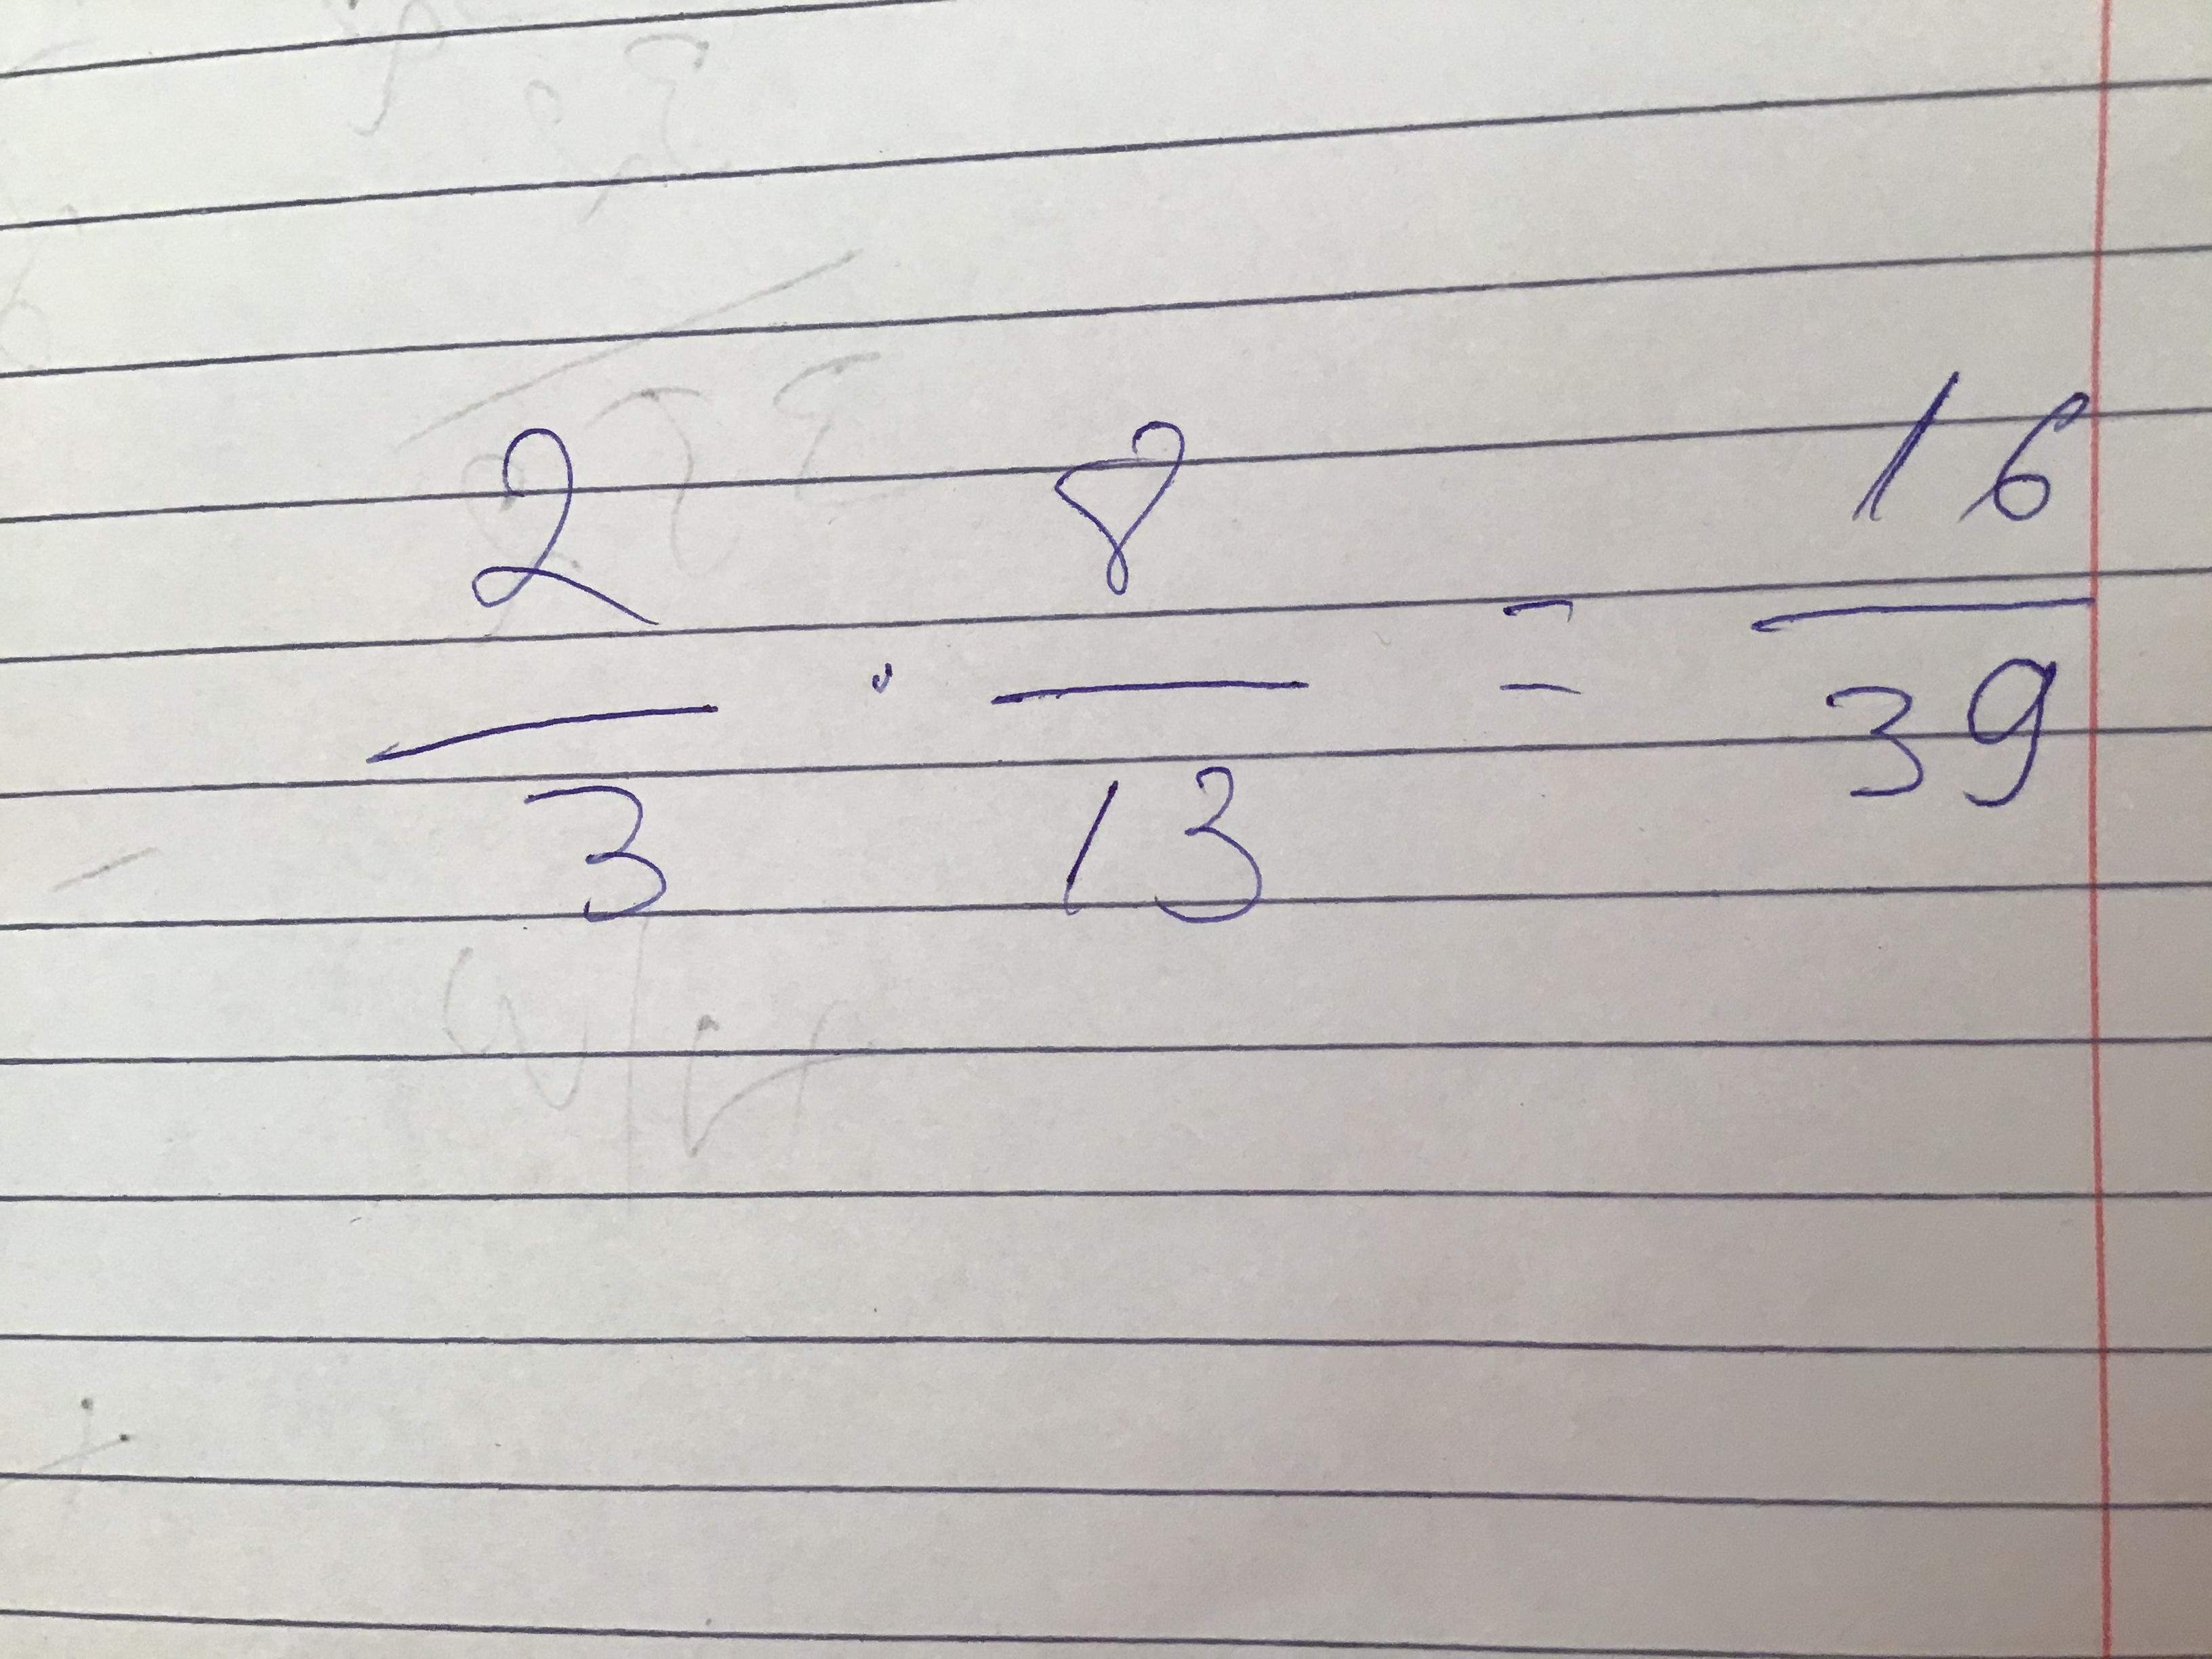 2/3 · 8/13 = 16/39